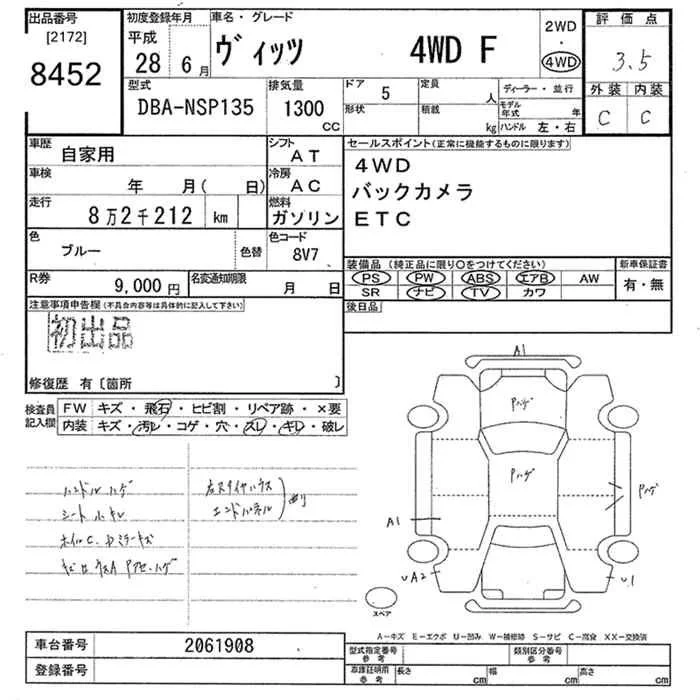 出品番号 初度登録年月 車名・グレード 2WD 評価点
[2172] 平成 ヴィッツ 4WD F ・ 3.5
8452 28 6月 4WD
型式 排気量 ドア 5 定員 人 ディーラー・並行 外装 内装
DBA-NSP135 1300 CC 形状 積載 kg モデル年式 年 C C
ハンドル 左・右
車歴 自家用 シフト AT セールスポイント(正常に機能するものに限ります)
車検 年 月( 日) 冷房 AC 4WD
走行 8万2千212 km 燃料 ガソリン バックカメラ
ETC
色 ブルー 色替 色コード 8V7
装備品(純正品に限り○をつけてください) 新車保証書
R券 9,000円 名変通知期限 月 日 PS PW ABS エアB AW 有・無
SR ナビ TV カワ
注意事項申告欄(不具合内容等は具体的に記入して下さい) 後日品
初出品
修復歴 有〔箇所 〕
検査員記入欄 FW キズ・飛石・ヒビ割・リペア跡・×要
内装 キズ・汚レ・コゲ・穴・スレ・キレ・破レ
ハンドルハゲ
シート
エンドパネル
A1
Pハゲ
Pハゲ
Pハゲ
A1
UA2 U1
スペア
A-キズ E-エクボ U-凹み W-補修跡 S-サビ C-腐食 XX-交換済
車台番号 2061908 型式指定番号 参考 類別区分番号 参考
登録番号 車庫証明用 参考 長さ cm 幅 cm 高さ cm